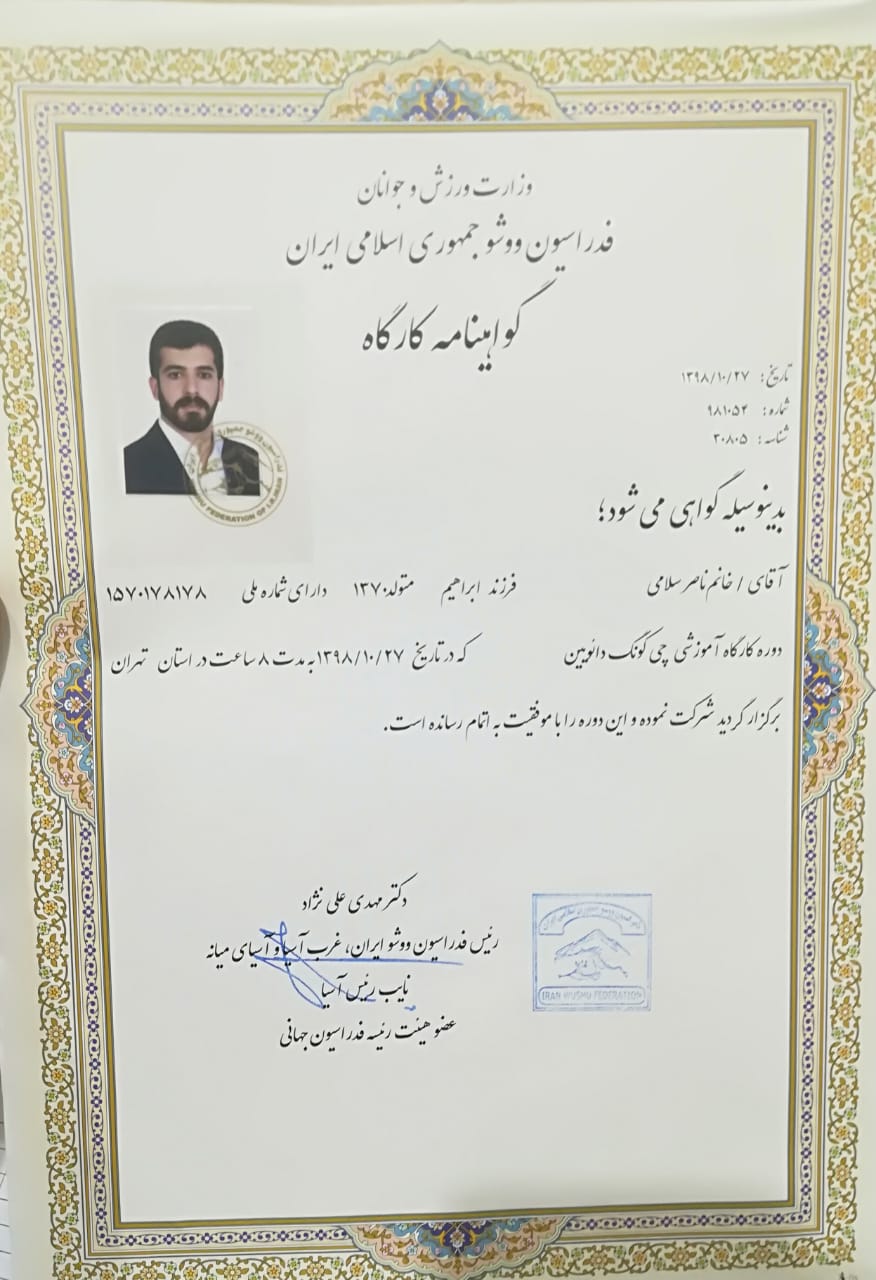 وزارت ورزش و جوانان
فدراسیون ووشو جمهوری اسلامی ایران
گواهینامه کارگاه
تاریخ: ۱۳۹۸/۱۰/۲۷
شماره: ۹۸۱۰۵۴
شناسه: ۳۰۸۰۵
بدینوسیله گواهی می شود؛
آقای / خانم ناصر سلامی فرزند ابراهیم متولد ۱۳۷۰ دارای شماره ملی ۱۵۷۰۱۷۸۱۷۸
دوره کارگاه آموزشی چی کونگ دائویین که در تاریخ ۱۳۹۸/۱۰/۲۷ به مدت ۸ ساعت در استان تهران
برگزار گردید شرکت نموده و این دوره را با موفقیت به اتمام رسانده است.
دکتر مهدی علی نژاد
رئیس فدراسیون ووشو ایران، غرب آسیا و آسیای میانه
نایب رئیس آسیا
عضو هیئت رئیسه فدراسیون جهانی
IRAN WUSHU FEDERATION